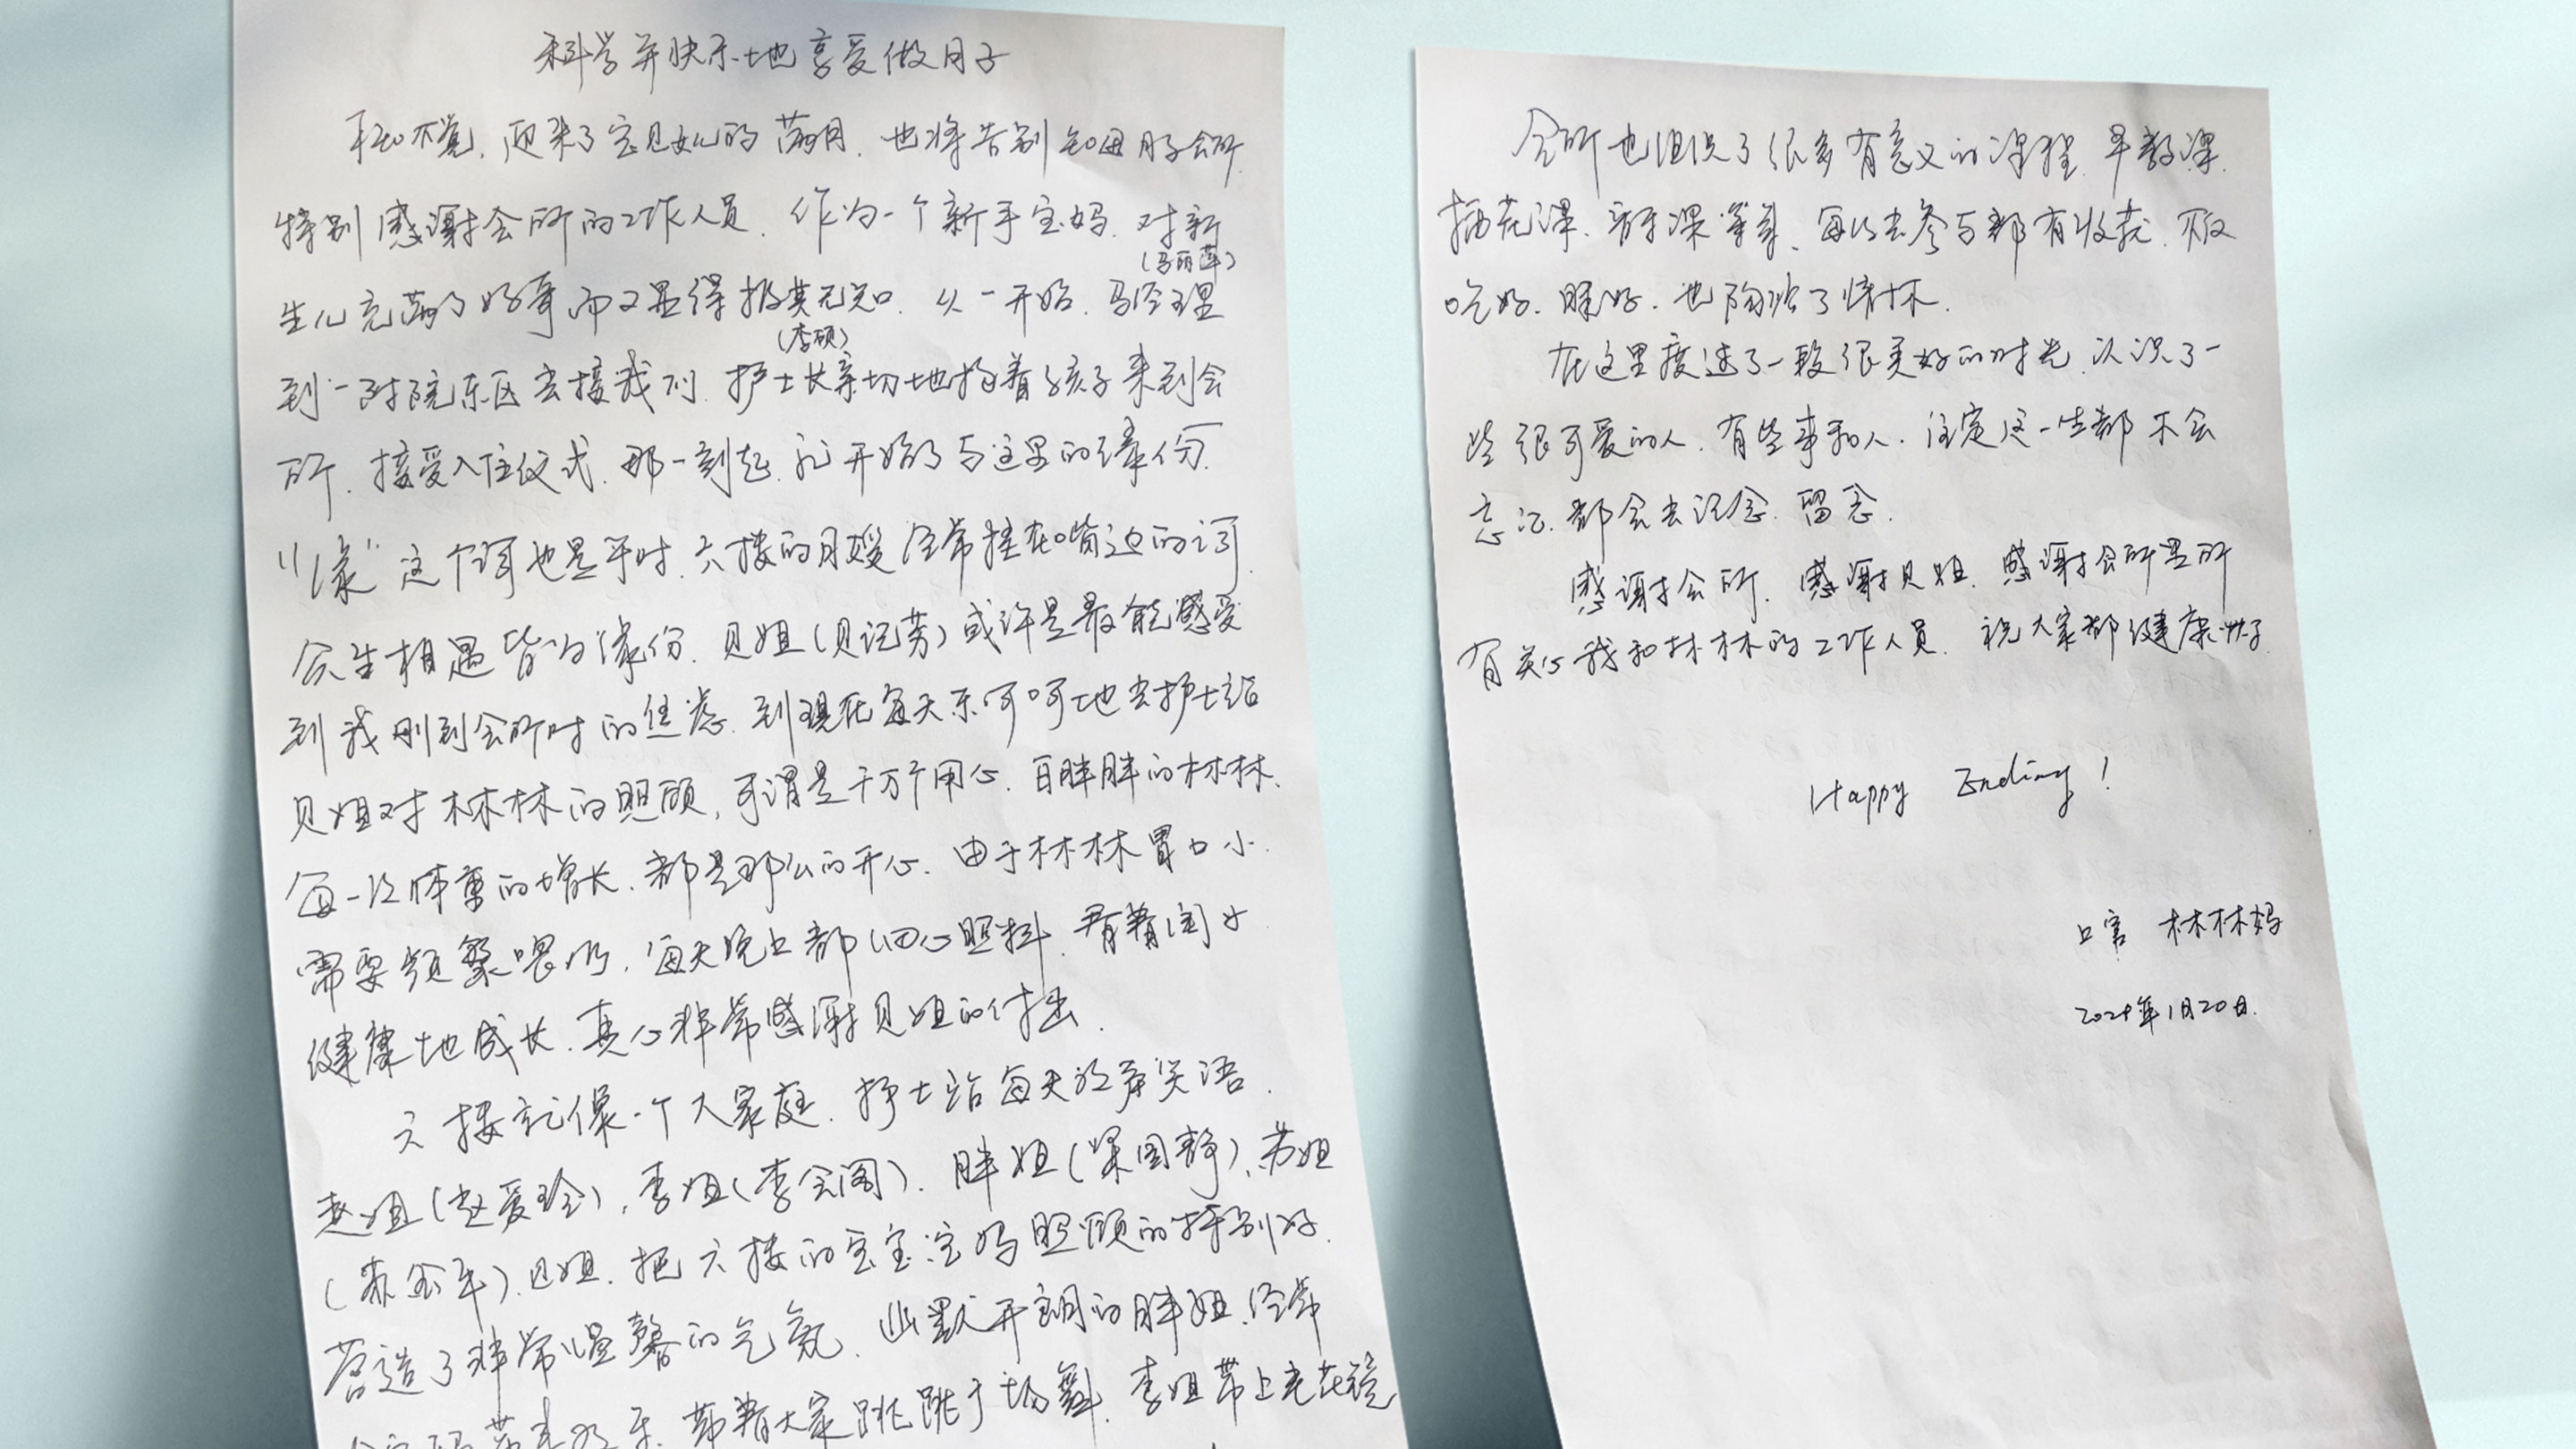 科学并快乐地享受做月子
不知不觉，迎来了宝贝女儿的满月，也将告别知母月子会所，
特别感谢会所的工作人员，作为一个新手宝妈，对新
(马丽萍)
生儿充满了好奇而又显得极其无知，从一开始，马经理
(李硕)
到一附院东区去接我们，护士长亲切地抱着孩子来到会
所，接受入住仪式，那一刻起，就开始了与这里的缘份，
“缘”这个词也是平时，六楼的月嫂经常挂在嘴边的词，
今生相遇皆为缘份，贝姐(贝记芳)或许是最能感受
到我刚到会所时的焦虑，到现在每天乐呵呵地去护士站
贝姐对林林的照顾，可谓是千万个用心，白胖胖的林林，
每一次体重的增长，都是那么的开心，由于林林胃口小，
需要频繁喂奶，每天晚上都细心照料，看着闺女
健康地成长，真心非常感谢贝姐的付出．
六楼就像一个大家庭，护士站每天欢声笑语，
赵姐(赵爱玲)，李姐(李会阁)，胖姐(梁国静)，苏姐
(苏金平)，贝姐，把六楼的宝宝宝妈照顾的特别好，
营造了非常温馨的气氛，幽默开朗的胖姐，经常
带来欢乐，带着大家跳跳广场舞，李姐带上老花镜
会所也组织了很多有意义的课程，早教课，
插花课、音乐课等等，每次去参与都有收获，不仅
吃好，睡好，也陶冶了情怀．
在这里度过了一段很美好的时光，认识了一
些很可爱的人，有些事和人，注定这一生都不会
忘记，都会去记念，留念．
感谢会所，感谢贝姐，感谢会所里所
有关心我和林林的工作人员，祝大家都健康快乐
Happy Ending！
林林妈
2024年1月20日．